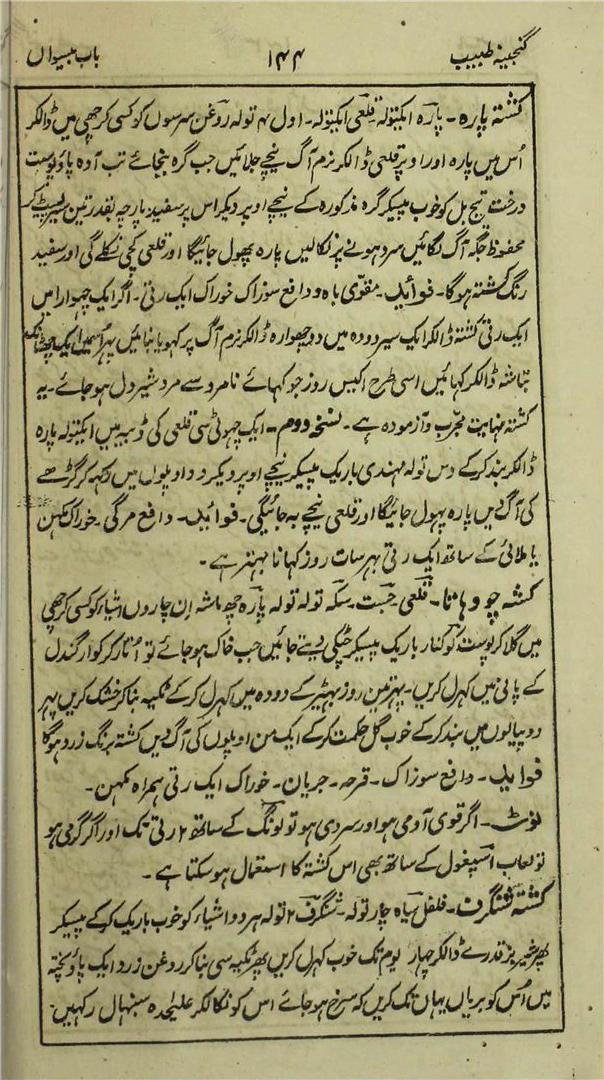 گنجینہ طبیب
۱۴۴
باب بیسواں
کشتہ پارہ۔ پارہ ایکتولہ قلعی ایکتولہ۔ اول ۴ تولہ روغن سرسوں کو کسی کرچھی میں ڈالکر
اُس میں پارہ اور اوپر قلعی ڈالکر نرم آگ نیچے جلائیں جب گرہ بنجائے تب آدہ پاؤ پوست
درخت تج بل کو خوب پیسکر گرہ مذکورہ کے نیچے اوپر دیکر اس پر سفید پارچہ بقدر تین سیر لپیٹ کے
محفوظ جگہ آگ لگائیں سرد ہونے پر نکالیں پارہ پھول جائیگا اور قلعی کچی نکلے گی اور سفید
رنگ کشتہ ہوگا۔ فوائد۔ مقوی باہ و دافع سوزاک خوراک ایک رتی۔ اگر ایک چہوارا میں
ایک رتی کشتہ ڈالکر ایک سیر دودہ میں دو چھوارہ ڈالکر نرم آگ پر کہویا بنائیں پہر اسمیں ایک چھٹانک
بتاشہ ڈالکر کہائیں اسی طرح اکیس روز جو کہائے نامرد سے مرد شیر دل ہوجائے۔ یہ
کشتہ نہایت مجرب و آزمودہ ہے۔ نسخہ دوم۔ ایک چہوٹی سی قلعی کی ڈبیہ میں ایکتولہ پارہ
ڈالکر بند کرکے دس تولہ مہندی باریک پیسکر نیچے اوپر دیکر دو اوپلوں میں رکہہ کر گڑھے
کی آگ دیں پارہ پہول جائیگا اور قلعی نیچے بہ جائیگی۔ فوائد۔ دافع مرگی۔ خوراک مکہن
یا ملائی کے ساتھ ایک رتی بہر سات روز کہانا بہتر ہے۔
کشتہ چو دہاتا۔ قلعی۔ جست۔ سکہ تولہ تولہ پارہ چھ ماشہ اِن چاروں اشیاء کو کسی کرچھی
میں گلا کر پوست کوکنار باریک پیسکر چٹکی دیتے جائیں جب خاک ہوجائے تو اُتار کر کوار گندل
کے پانی میں کہرل کریں۔ پہر تین روز بہیڑ کے دودہ میں کہرل کرکے ٹکیہ بنا کر خشک کریں پہر
دو پیالوں میں بند کرکے خوب گل حکمت کرکے ایک من اوپلوں کی آگ دیں کشتہ برنگ زرد ہوگا
فوائد۔ دافع سوزاک۔ قرحہ۔ جریان۔ خوراک ایک رتی ہمراہ مکہن۔
نوٹ۔ اگر قوی آدمی ہو اور سردی ہو تو لونگ کے ساتھ ۲ رتی تک اور اگر گرمی ہو
تو لعاب اسپغول کے ساتھ بھی اس کشتہ کا استعمال ہوسکتا ہے۔
کشتہ شنگرف۔ فلفل سیاہ چار تولہ۔ شنگرف ۲ تولہ ہر دو اشیاء کو خوب باریک کرکے پیسکر
پھر شیر بز قدرے ڈالکر چہار یوم تک خوب کہرل کریں پھر ٹکیہ سی بنا کر روغن زرد ایک پاؤ پختہ
میں اُس کو بریاں یہاں تک کریں کہ سرخ ہوجائے اس کو نکالکر علیحدہ سنبھال رکہیں۔